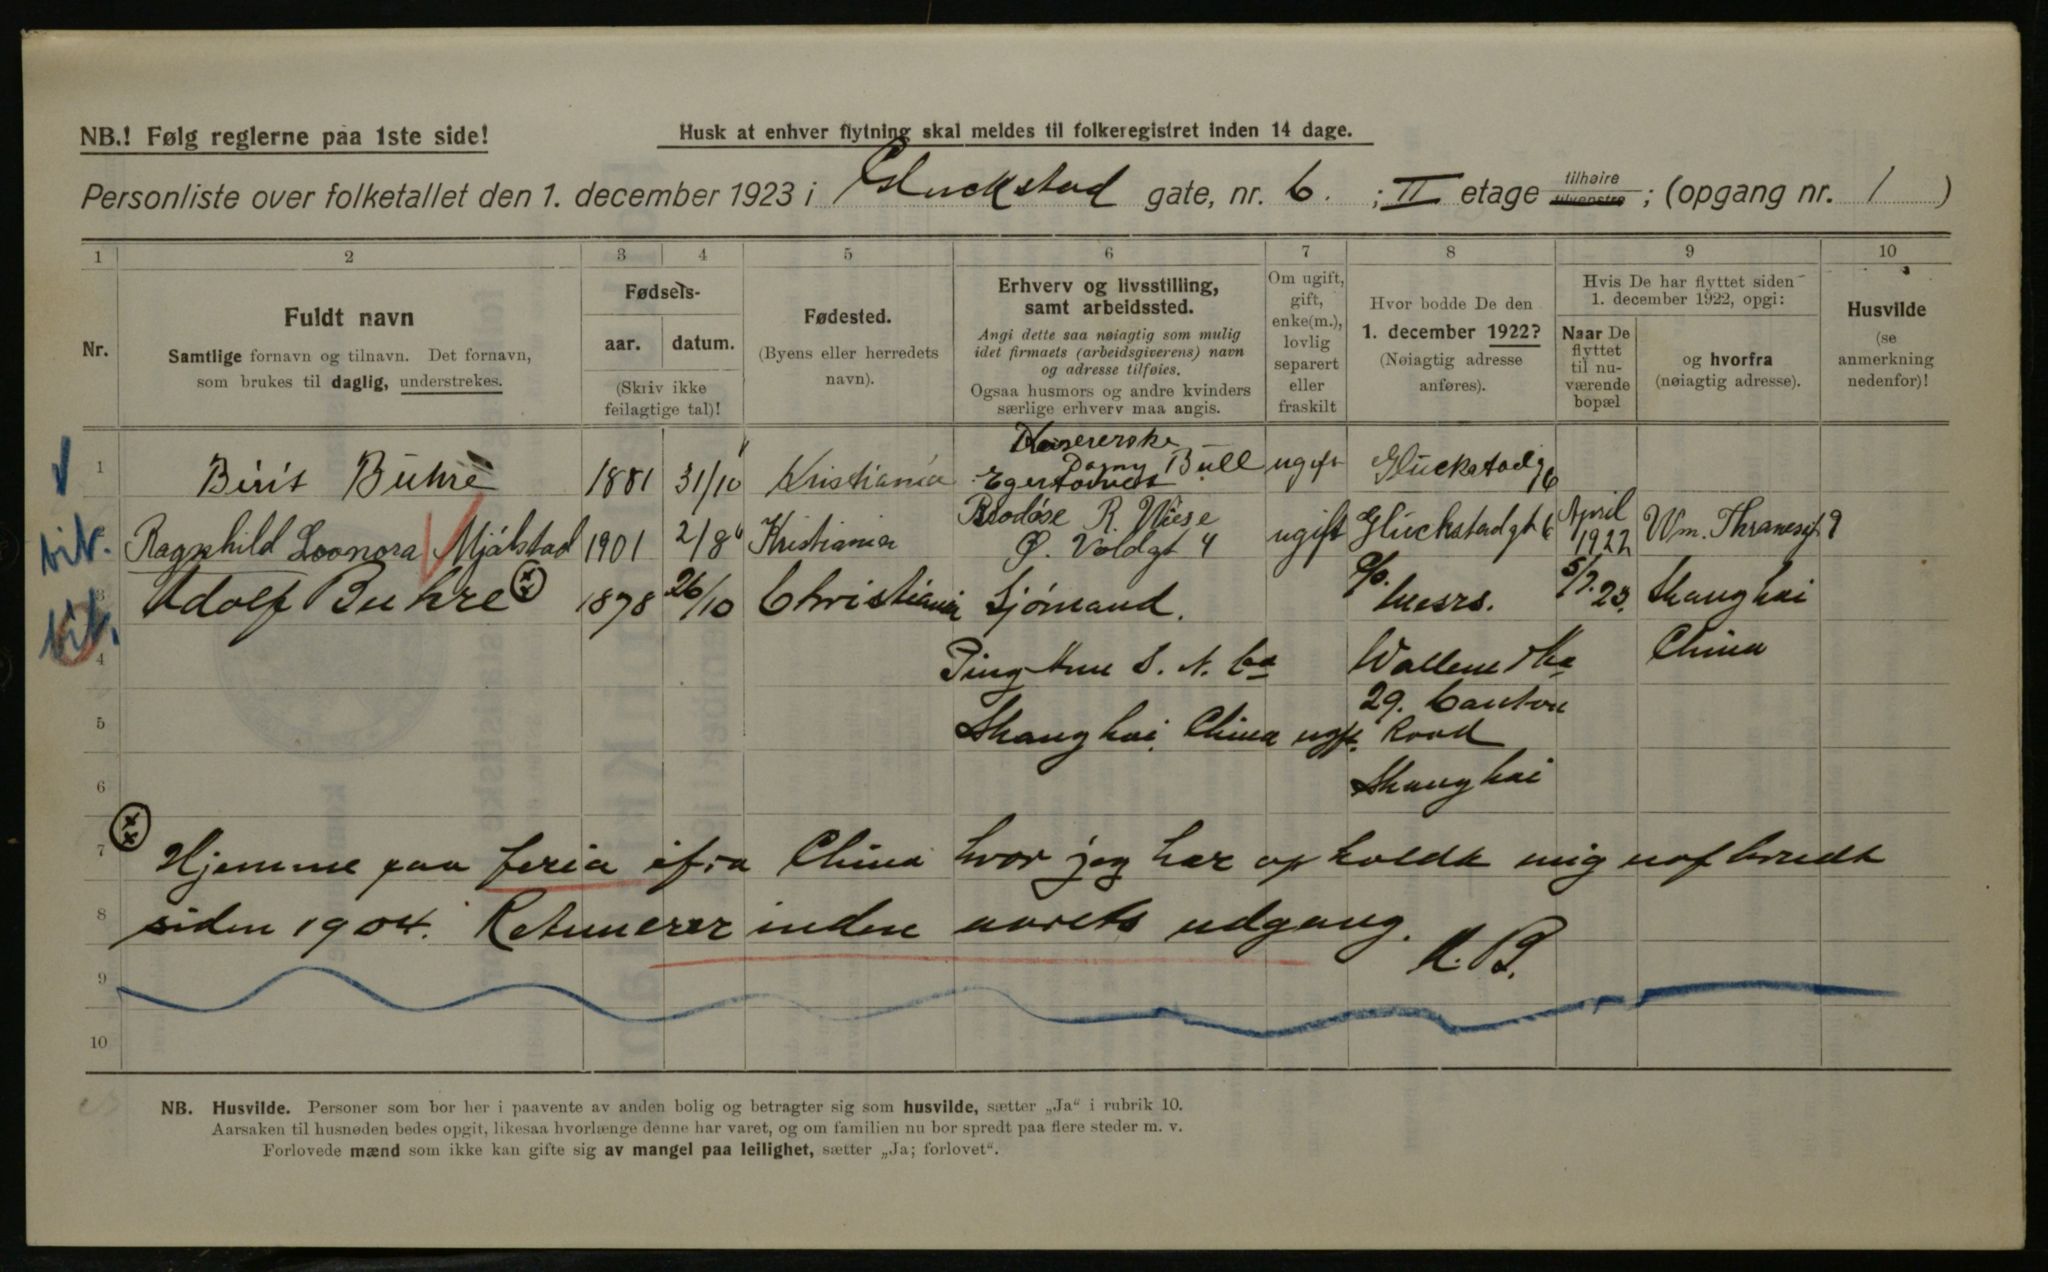 NB.! Følg reglerne paa 1ste side!
Husk at enhver flytning skal meldes til folkeregistret inden 14 dage.
Personliste over folketallet den 1. december 1923 i Gluckstad gate, nr. 6. ; II etage tilhøire tilvenstre ; (opgang nr. 1 )
1 2 3 4 5 6 7 8 9 10
Nr.
Fuldt navn
Samtlige fornavn og tilnavn. Det fornavn,
som brukes til daglig, understrekes.
Fødsels-
aar. datum.
(Skriv ikke
feilagtige tal)!
Fødested.
(Byens eller herredets
navn).
Erhverv og livsstilling,
samt arbeidssted.
Angi dette saa nøiagtig som mulig
idet firmaets (arbeidsgiverens) navn
og adresse tilføies.
Ogsaa husmors og andre kvinders
særlige erhverv maa angis.
Om ugift,
gift,
enke(m.),
lovlig
separert
eller
fraskilt
Hvor bodde De den
1. december 1922?
(Nøiagtig adresse
anføres).
Hvis De har flyttet siden
1. december 1922, opgi:
Naar De
flyttet
til nu-
værende
bopæl
og hvorfra
(nøiagtig adresse).
Husvilde
(se
anmerkning
nedenfor)!
1 Birit Buhre 1881 31/10 Kristiania Kasererske Dagny Bull Egertorvet ugift Gluckstadg 6
bit. Ragnhild Loonora Mjølstad 1901 2/8 Kristiania Brodøse R. Wiese Ø. Voldgt 4 ugift Gluckstadgt 6 April 1922 Wm. Thranesgt 9
bit. 3 Adolf Buhre 1878 26/10 Christiania Sjömand. c/o. Messrs. 5/7.23. Shanghai
4 S. N. Co Wallem & Co China
29. Canton
5 Shanghai. China ugft. Road
6 Shanghai
7 Hjemme paa feria ifra China hvor jeg har opholdt mig uafbrudt
8 siden 1904. Retunerer inden aarets udgang.
A. B.
9
10
NB. Husvilde. Personer som bor her i paavente av anden bolig og betragter sig som husvilde, sætter „Ja“ i rubrik 10.
Aarsaken til husnøden bedes opgit, likesaa hvorlænge denne har varet, og om familien nu bor spredt paa flere steder m. v.
Forlovede mænd som ikke kan gifte sig av mangel paa leilighet, sætter „Ja; forlovet“.